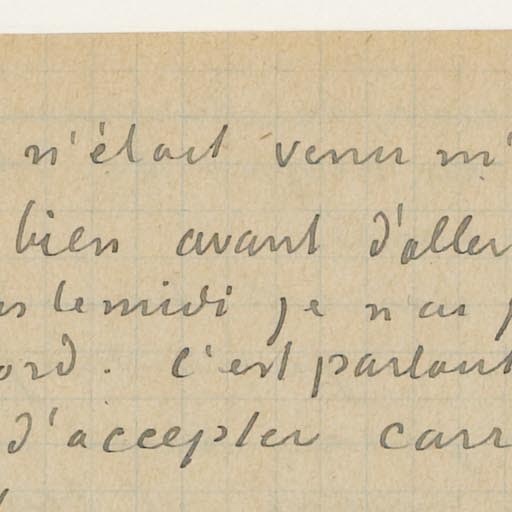 n'était venu m'
bien avant d'aller
le midi je n'ai
ord. C'est partout
d'accepter carr